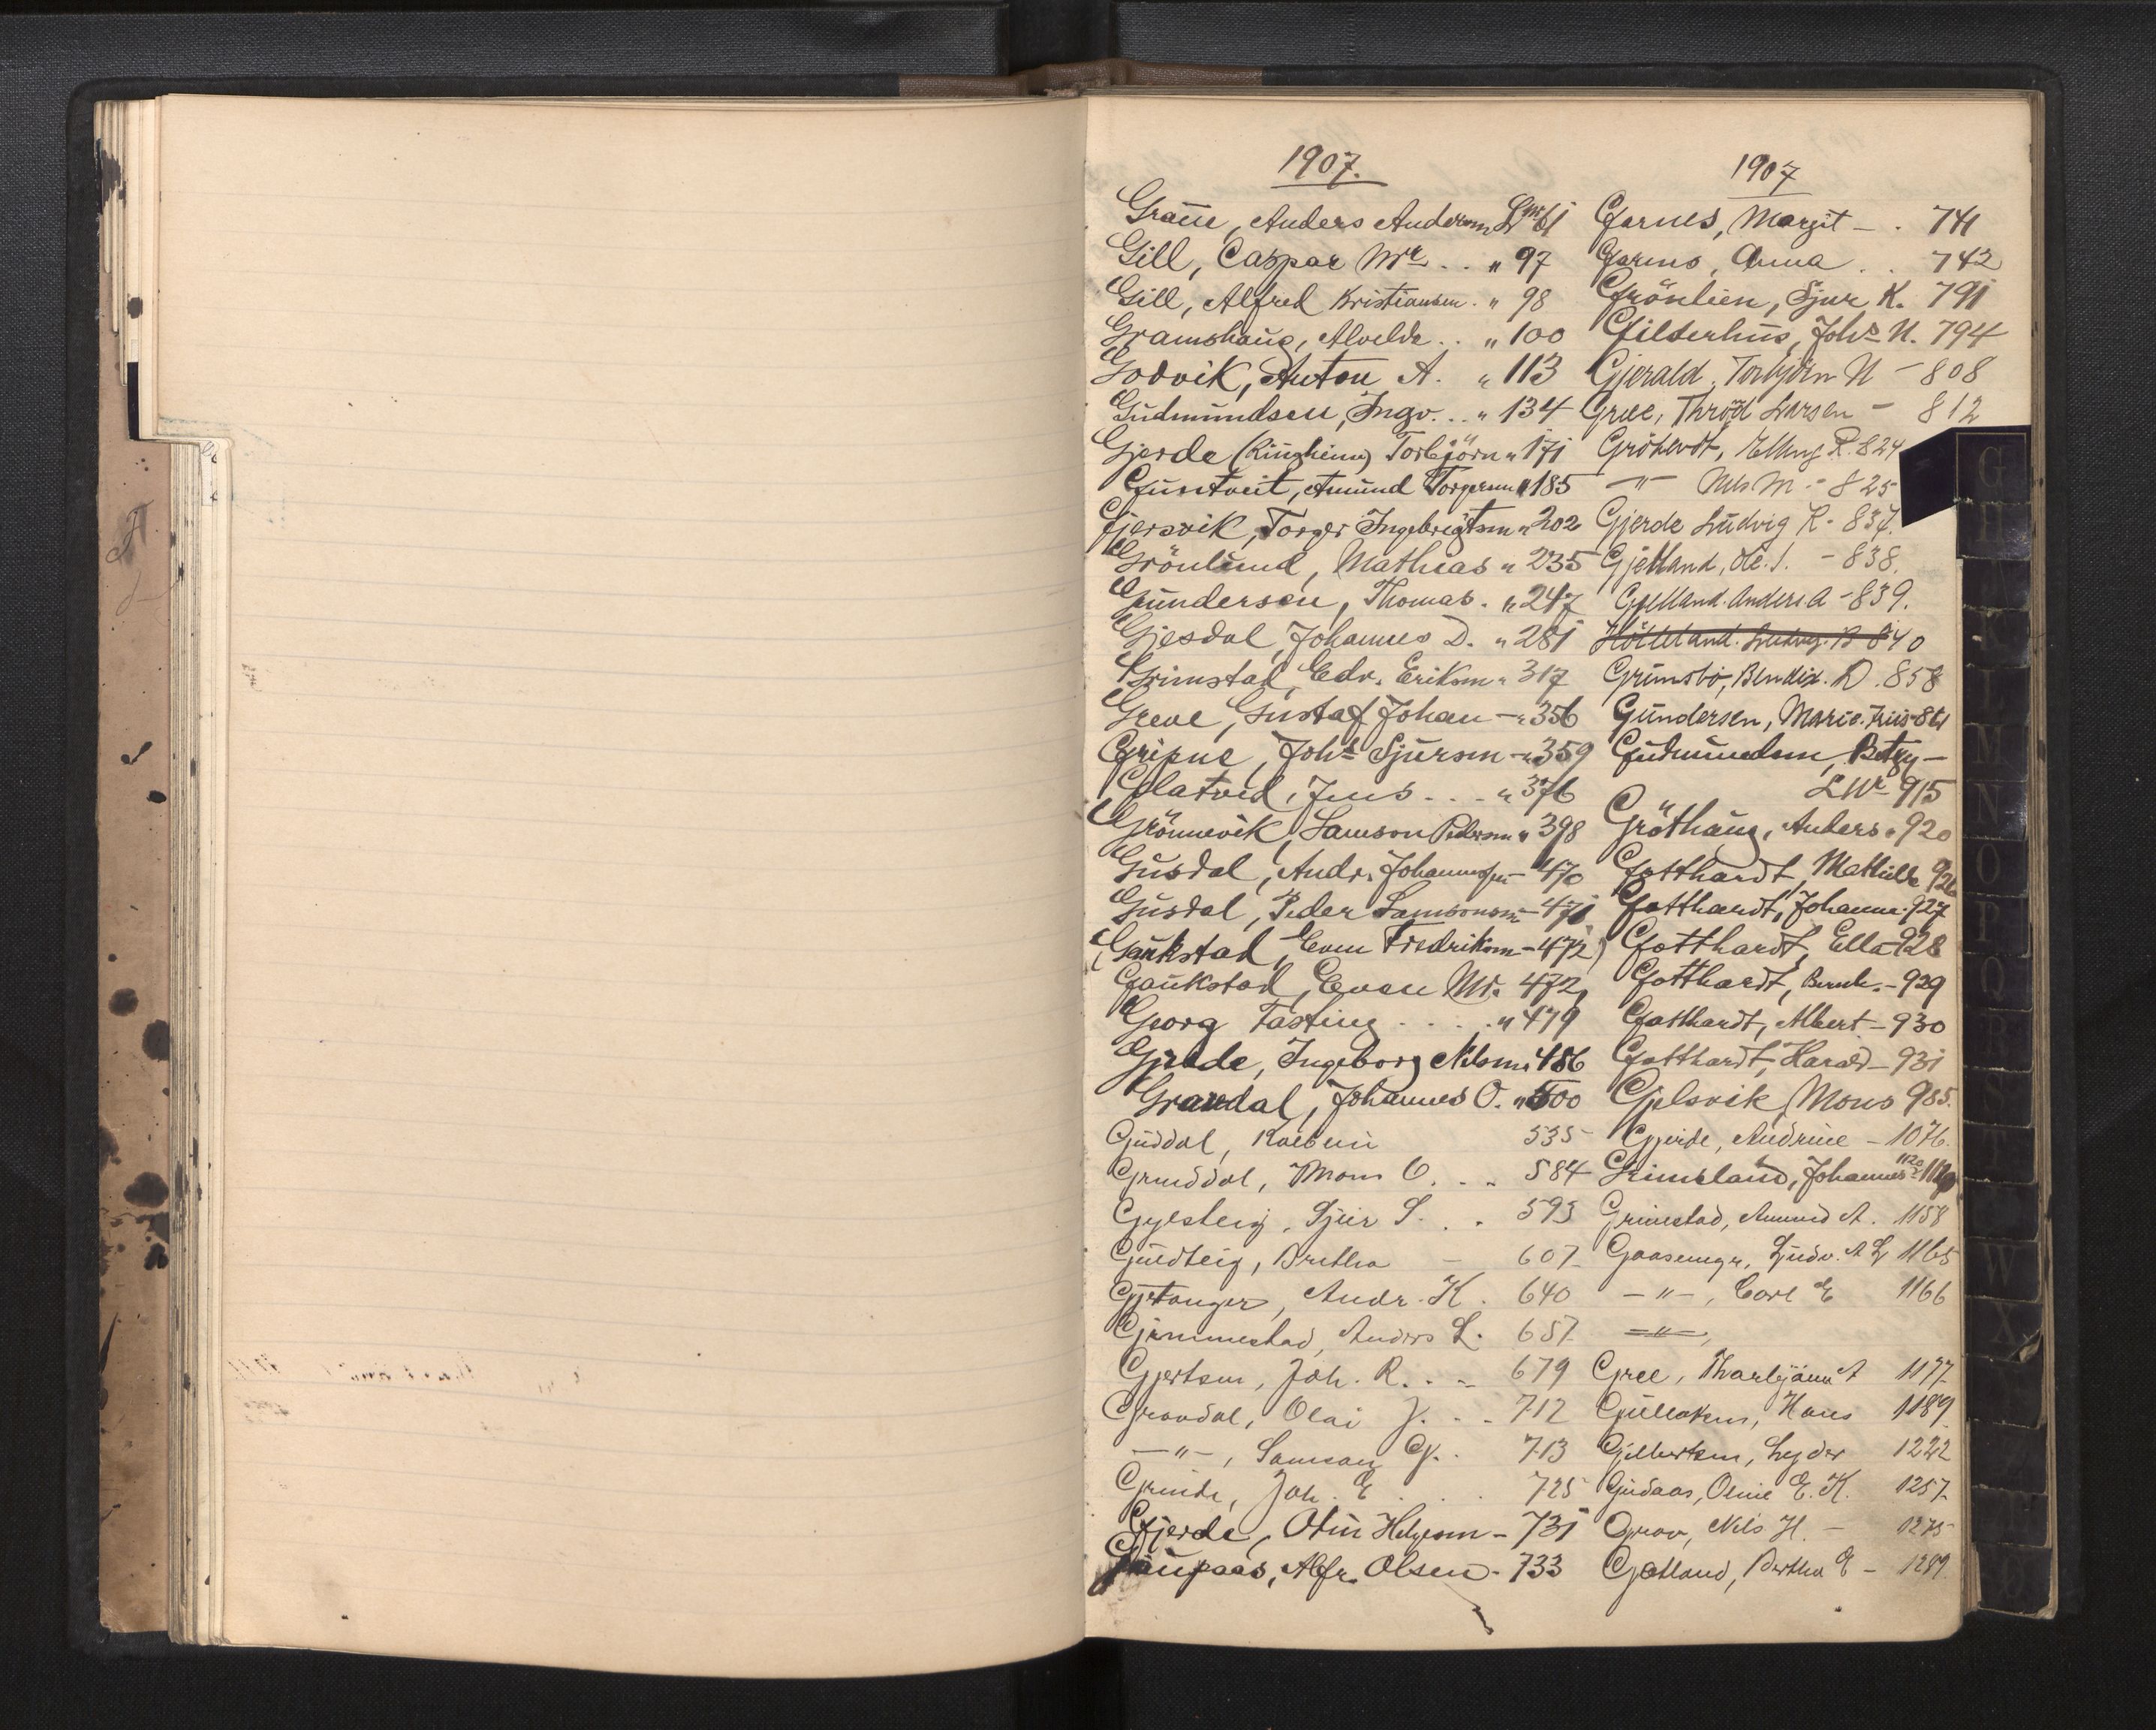 1907.
Graue, Anders Andersen LNr 61
Gill, Caspar Mr. . . " 97
Gill, Alfred Kristiansen . " 98
Gramshaug, Alvilde . . " 100
Godvik, Anton A. " 113
Gudmundsen, Ingv. . . " 134
Gjerde (Ringheim) Torbjörn " 171
Guntveit, Amund Torgersen " 185
Gjersvik, Torger Ingebrigtsen " 202
Grönlund, Mathias " 235
Gundersen, Thomas . " 247
Gjesdal, Johannes D. " 281
Grimstad, Edv. Eriksen " 317
Greve, Gustaf Johan — " 356
Gripne, Johs Sjursen — " 359
Glatved, Jens . . . " 376
Grönnevik, Samson Pedersen " 398
Gusdal, Andr. Johannessen — 470
Gusdal, Peder Samsonsen — 471
(Gaukstad, Even Fredriksen — 472)
Gaukstad, Even Mr. 472
Georg Fasting . . . . " 479
Gjelde, Ingeborg Nilsen 486
Gravdal, Johannes O. " 500
Guddal, 535
Gruddal, Mons O. . . 584
Sjur S. . . 593
Guldteig, Bretha — 607
Gjetanger, Andr. K. 640
Gjemmestad, Anders L. 657
Gjertsen, Joh. R. . . 679
Gravdal, Olai J. . . 712
—"—, Samson G. . 713
Grinde, Joh. E . . . 725
Gjerde, Otin Helgesen — 731
Gaupaas, Alfr. Olsen — 733
1907
Garnes, Margit — . 741
Garnes, Anna . . 742
Grönlien, Sjur K. 791
Gilderhus, Johs N. 794
Gjerald, Torbjörn N — 808
Gree, Thröd Larsen — 812
Elling R. 824
—"— Nils M — 825
Gjerde Ludvig K — 837.
Gjelland, Ole. J. — 838.
Gjelland. Anders A — 839.
Ludvig. B 840
Grimsbö, Bendix. D. 858
Gundersen, Marie. 861
Gudmundsen, Betzy —
LNr 915
Gröthaug, Anders " 920
Gotthardt, Mathilde 926
Gotthardt, Johanne 927
Gotthardt, Ella 928
Gotthardt, Bernh. — 929
Gotthardt, Albert — 930
Gotthardt, Harald — 931
Gjelsvik, Mons 985.
Gjerde, Andrine — 1076.
Grimsland, Johannes 1120
Grimestad, Amund A. 1158
Ludv. A L 1165
—"—, Carl E 1166
—"—,
Gree, Tharbjörn A 1177
Gullaksen, Hans 1189
Gilbertsen, Lyder 1222
Gudaas, Oline E. K. 1257
Grov, Nils H. — 1275
Gjetland, Bertha E — 1289